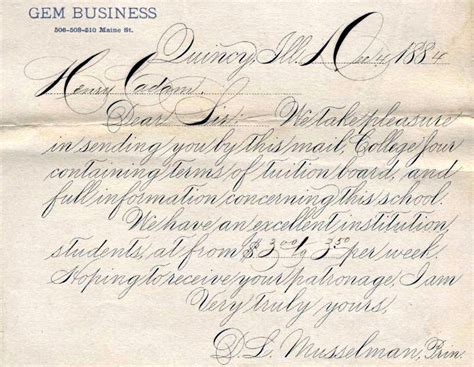 GEM BUSINESS
506-508-510 Maine St.
Quincy, Ill., Dec 4, 1884
Henry Eadam.
Dear Sir: We take pleasure
in sending you by this mail, College four
containing terms of tuition board, and
full information concerning this school.
We have an excellent institution
students, at from $3.00 to 3.50 per week.
Hoping to receive your patronage, I am
Very truly yours,
D. L. Musselman, Prin.